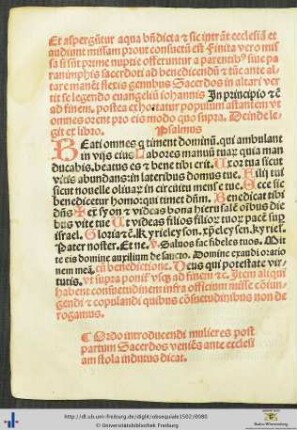 Et aspergūtur aqua bn̄dicta ⁊ sic intrāt ecclesiā et
audiunt missam prout consuetū est Finita vero mis
sa si sūt prime nuptie offeruntur a parentibꝰ siue pa
ranimphis sacerdoti ad benedicendū ⁊ tūc ante al-
tare manēt flexis genibus Sacerdos in altari ver
tit se legendo euangeliū iohannis In principio ⁊c̄
ad finem. postea exhortatur populum astantem vt
omnes orent pro eis modo quo supra. Deinde le-
git ex libro. Psalmus
BEati omnes q̄ timent dominū. qui ambulant
in vijs eius Labores manuū tuaꝝ quia man
ducabis. beatus es ⁊ bene tibi erit. Uxor tua sicut
vitis abundans: in lateribus domus tue. Filij tui
sicut nouelle oliuaꝝ in circuitu mense tue. Ecce sic
benedicetur homo: qui timet dn̄m. Benedicat tibi
dn̄s ex syon ⁊ videas bona hierusalē oibus die
bus vite tue Et videas filios filioꝝ tuoꝝ: pacē sup
israel. Gloria ⁊c̄. kyrieleyson. xp̄eleyson. kyrieleyson.
Pater noster. Et ne. Saluos fac fideles tuos. Mit
te eis domine auxilium de sancto. Domine exaudi oratio
nem meā. cū benedictione. Deus qui potestate vir-
tutis. vt supra ponit̄ vsqꝫ ad finem ⁊c̄. Item aliqui
habent consuetudinem infra officium misse cōiun-
gendi ⁊ copulandi quibus cōsuetudinibus non de
rogamus.
¶ Ordo introducendi mulieres post
partum Sacerdos veniēs ante ecclesi
am stola indutus dicat.
http://dl.ub.uni-freiburg.de/diglit/obsequiale1502/0080
© Universitätsbibliothek Freiburg